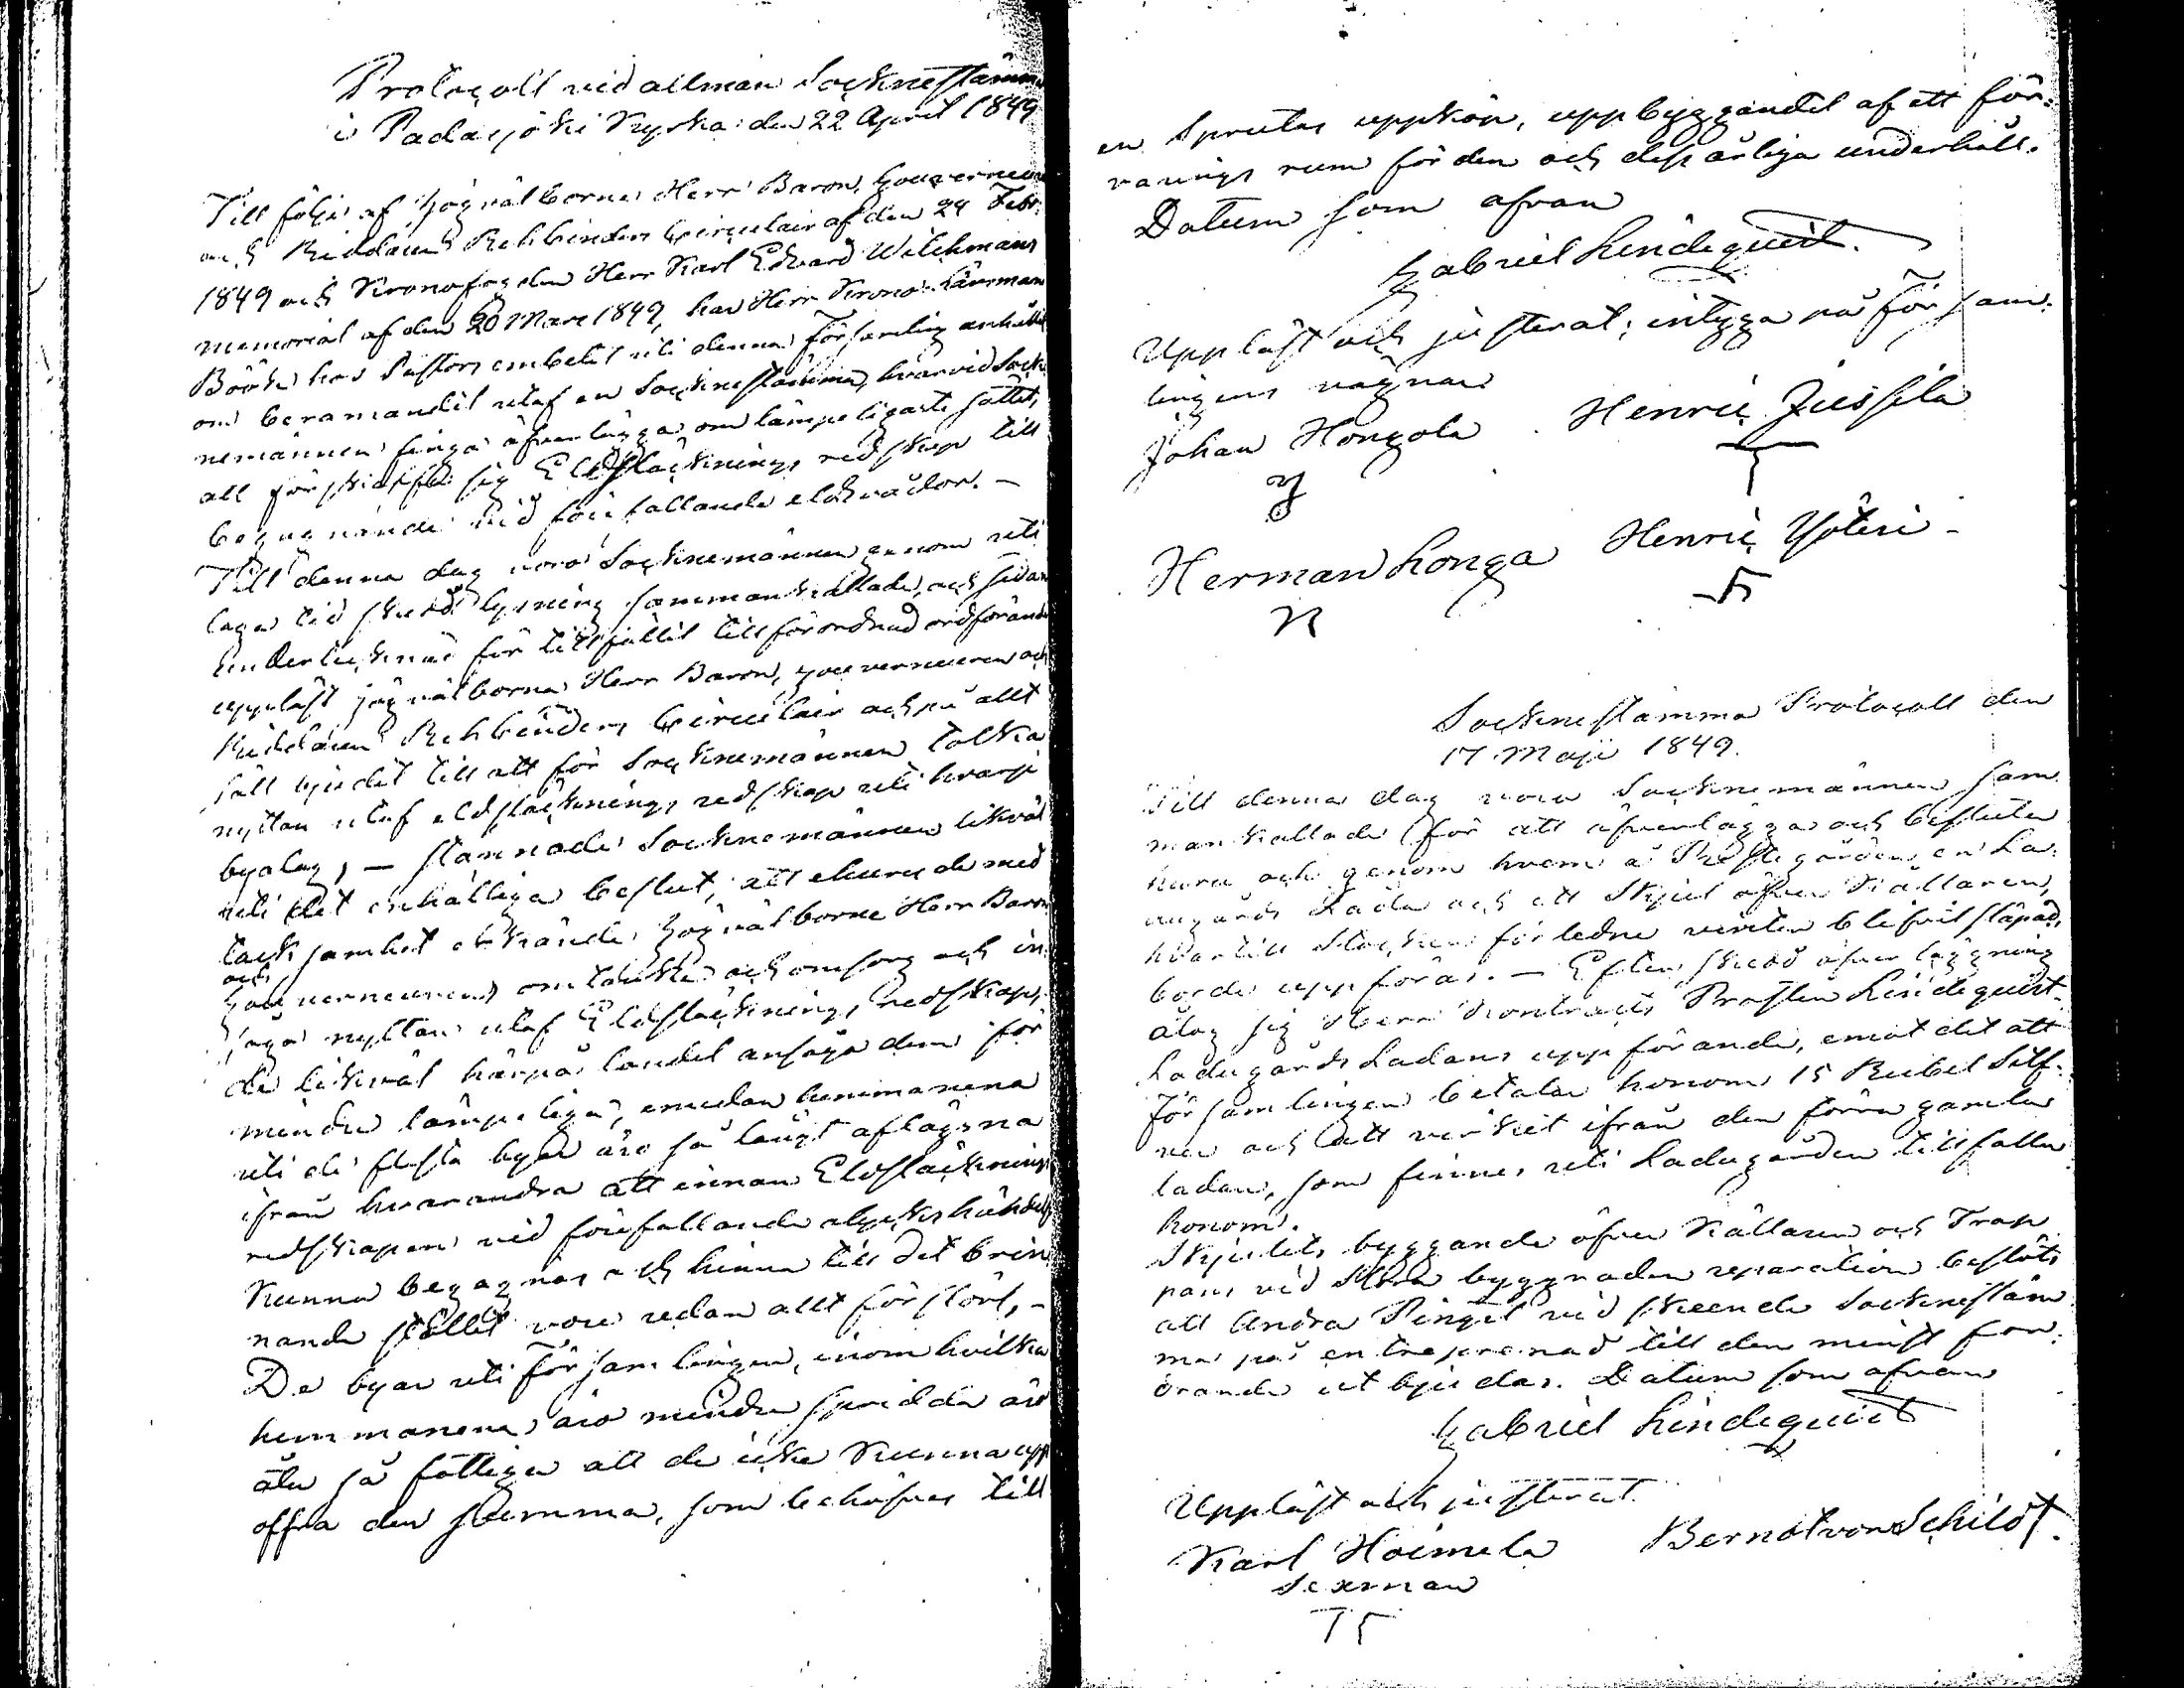 Protocoll vid allmän Sockneståmma
i Padasjoki Kyrka den 22 April 1849
Till följe af Högvälborne Herr Baron, Gouverneuren
och Riddaren Rehbinders Circulair af den 24 Febr:
1849 och Kronofogden Herr Karl Edvard Wilckmans
memorial af den 20 Mars 1849, har Herr Krono Länsman
Böök hos Pastors embetet uti denna församling anhållit
om beramandet utaf en Sockneståmma, hvarvid Sock-
nemännen finge öfverlägga om lämpeligaste sättet,
att förskaffa sig Eldsläcknings redskap till
begagnande vid förefallande eldsvådor. —
Till denna dag voro Socknemännen genom uti
laga tid skedd lysning sammankallade, och sedan
undertecknad för tillfället tillförordnad ordförande
uppläst högvälborne Herr Baron, gouverneuren och
Riddaren Rehbinders Circulair och på allt
sätt bjudit till att för Socknemännen tolka
nyttan utaf eldsläcknings redskap uti hvarje
byalag, — stannade Socknemännen likväl
uti det enhälliga beslut, att ehuru de med
tacksamhet erkände högvälborne Herr Baron
och
gouverneurens omtanke och omsorg och in-
såge nyttan utaf Eldsläcknings redskap,
de likväl härpå landet ansågo dem för
mindre lämpeliga, emedan hemmanena
uti de flesta byar äro så långt aflägsna
ifrån hvarandra att innan Eldsläcknings
redskapen vid förefallande olyckshändelse
kunna begagnas och hinna till det brin
nande stället vore redan allt förstördt, -
De byar uti församlingen, inom hvilka
hemmanena äro mindre spridda äro
åter så fattiga att de icke kunna upp
offra den summa, som behöfves till
en Sprutas uppköp, uppbyggandet af ett för-
varings rum för den och dess årliga underhåll.
Datum som ofvan
Gabriel Lindequist.
Uppläst och justerat; intyga på försam-
lingens vägnar
Johan Hongola Henric Jussila
Herman Longa Henric Yöteri -
Socknestämma Protocoll den
17 Maji 1849.
Till denna dag voro Socknemännen sam
mankallade för att öfverlägga och besluta
huru och genom hvem å Prestegården en La-
dugårds Lada och ett Skjul öfver Källaren,
hvartill Stockar förledne vinter blifvit släpade,
borde uppföras. — Efter skedd öfverläggning
åtog sig Herr Kontracts Prosten Lindequist
Ladugårds Ladans uppförande, emot det att
församlingen betalar honom 15 Rubel Silf-
ver och att virket ifrån den förra gamla
ladan, som finnes uti Ladugården tillfaller
honom.
Skjulets byggande öfver Källaren och Trap
pans vid Stora byggnaden reparation beslöts
att Andra Pingst vid skeende Socknestäm
ma på entreprenad till den minst for-
drande utbjudas. Datum som ofvan
Gabriel Lindequist
Uppläst och justerat.
Karl Hoimela Berndt von Schildt.
Sexman